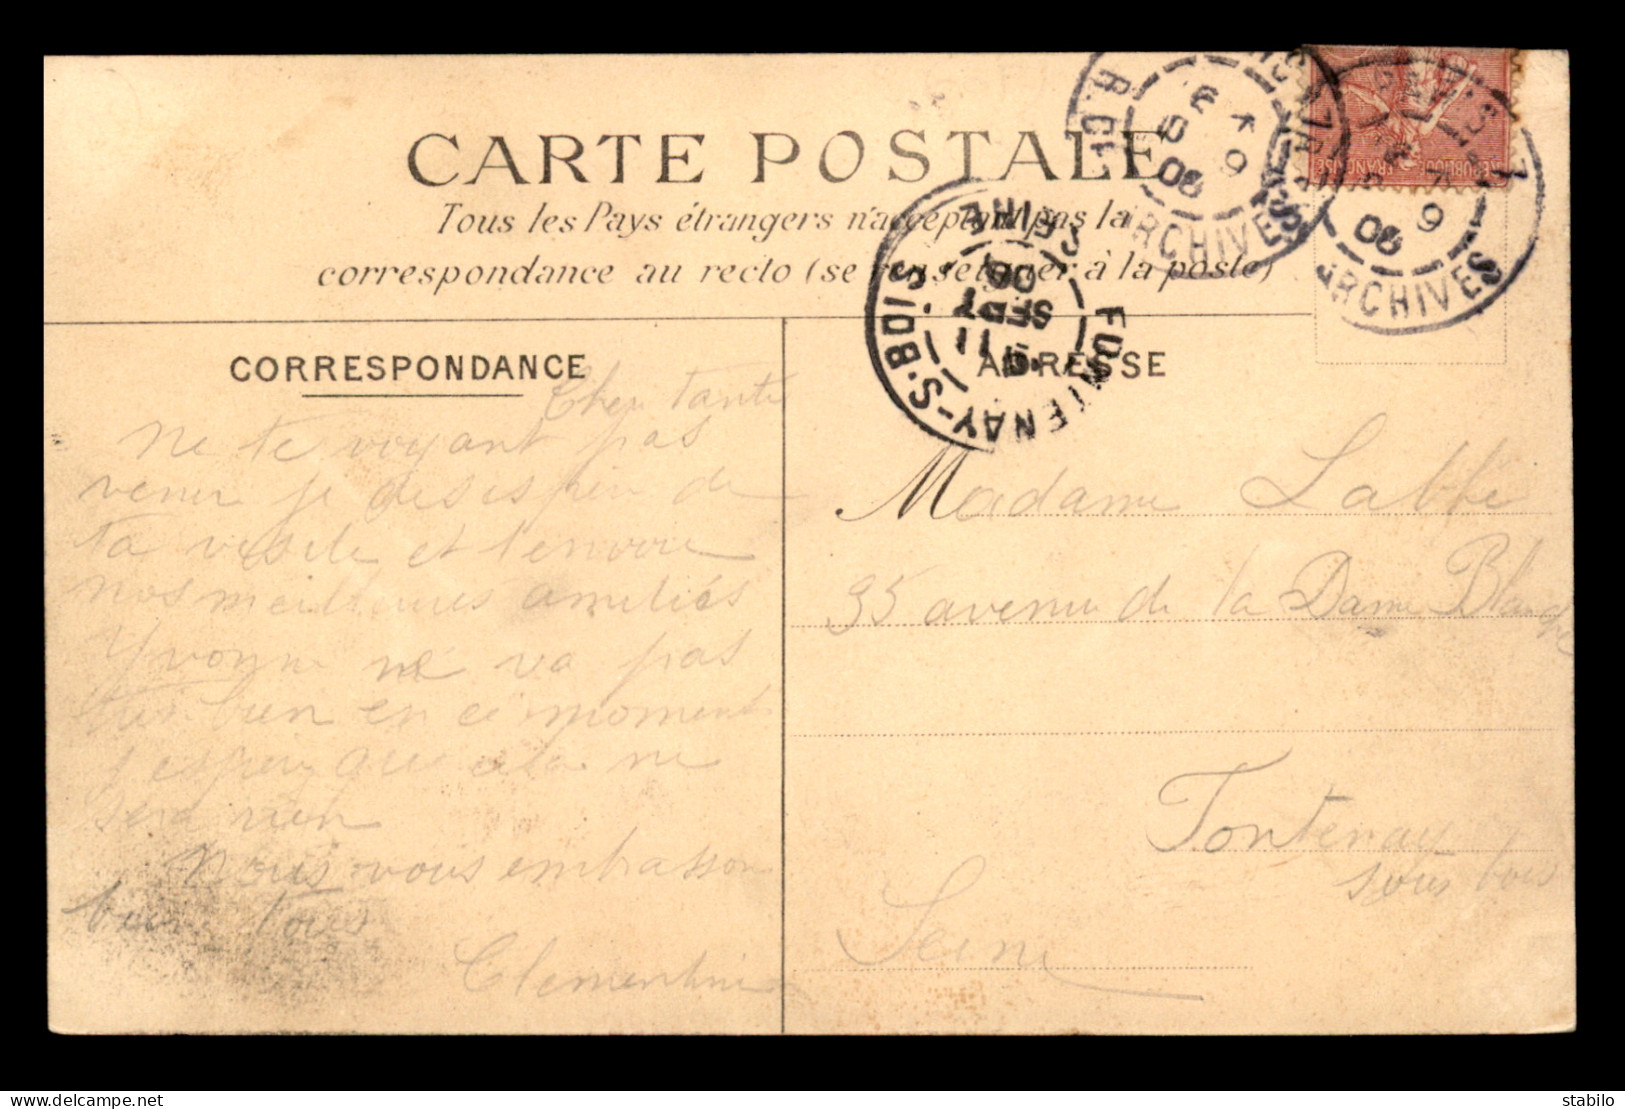 CARTE POSTALE
Tous les Pays étrangers n'acceptant pas la
correspondance au recto (se renseigner à la poste)
CORRESPONDANCE
Cher tante
Ne te voyant pas
venir je désespère de
ta visite et t'envoie
nos meilleures amitiés
Yvonne ne va pas
très bien en ce moment
j'espère que cela ne
sera rien
Nous vous embrassons
bien tous
Clementine
ADRESSE
Madame Labbé
35 avenue de la Dame Blanche
Fontenay
sous bois
Seine
FONTENAY-S-BOIS
SEINE
11
SEPT
06
ARCHIVES
06
ARCHIVES
06
REPUBLIQUE FRANÇAISE
delcampe.net
Stabilo